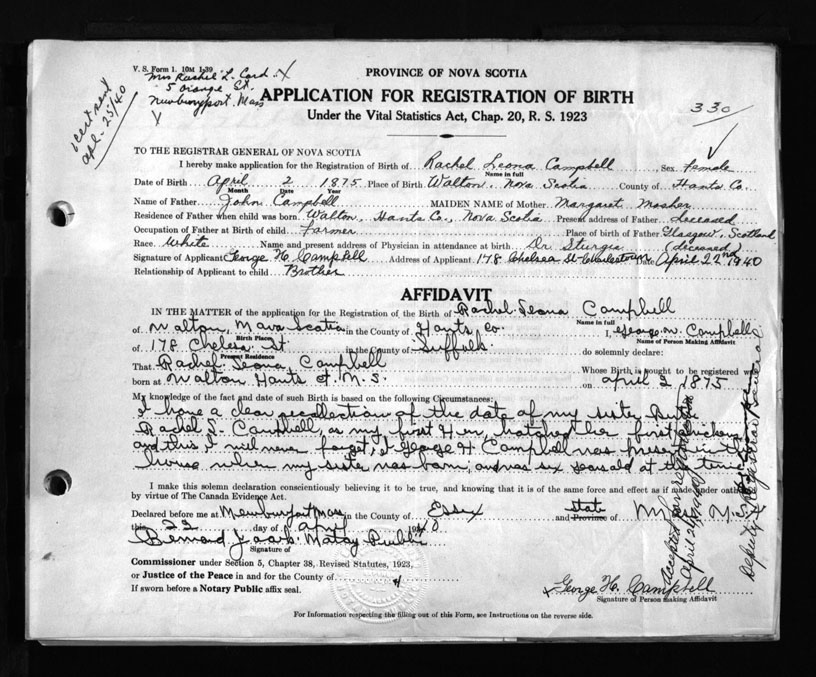 V. S. Form 1. 10M 1-39
Mrs Rachel L. Card X
5 Orange St.
Newburyport Mass
1 cert sent
apl- 25/40
PROVINCE OF NOVA SCOTIA
APPLICATION FOR REGISTRATION OF BIRTH
330
Under the Vital Statistics Act, Chap. 20, R. S. 1923
TO THE REGISTRAR GENERAL OF NOVA SCOTIA
I hereby make application for the Registration of Birth of Rachel Leona Campbell, Sex female
Name in full
Date of Birth April 2 1875 Place of Birth Walton, Nova Scotia County of Hants Co.
Month Date Year
Name of Father John Campbell MAIDEN NAME of Mother Margaret Mosher
Residence of Father when child was born Walton, Hants Co., Nova Scotia Present address of Father deceased
Occupation of Father at Birth of child Farmer Place of birth of Father Glasgow, Scotland
Race White Name and present address of Physician in attendance at birth Dr. Sturgis (deceased)
Signature of Applicant George H. Campbell Address of Applicant 178 Chelsea St-Charlestown Date April 22nd 1940
Relationship of Applicant to child Brother
AFFIDAVIT
IN THE MATTER of the application for the Registration of the Birth of Rachel Leona Campbell
Name in full
of Walton, Nova Scotia in the County of Hants Co. I, George H. Campbell
Birth Place Name of Person Making Affidavit
of 178 Chelsea St in the County of Suffolk do solemnly declare:
Present Residence
That Rachel Leona Campbell Whose Birth is sought to be registered was
born at Walton Hants N.S. on April 2 1875
My knowledge of the fact and date of such Birth is based on the following Circumstances:
I have a clear recollection of the date of my sister Birth
Rachel L. Campbell, as my first Hen, hatched her first chickens
and this I will never forget, I George H Campbell was present in the
house when my sister was born, and was six years old at the time
I make this solemn declaration conscientiously believing it to be true, and knowing that it is of the same force and effect as if made under oath
by virtue of The Canada Evidence Act.
Declared before me at Newburyport Mass in the County of Essex and state Province of Mass
this 22 day of April 1940
Bernard Jacobs Notary Public
Signature of
Commissioner under Section 5, Chapter 38, Revised Statutes, 1923,
or Justice of the Peace in and for the County of
If sworn before a Notary Public affix seal.
X George H. Campbell
Signature of Person making Affidavit
Accepted for registration
Deputy Registrar General
For Information respecting the filling out of this Form, see Instructions on the reverse side.